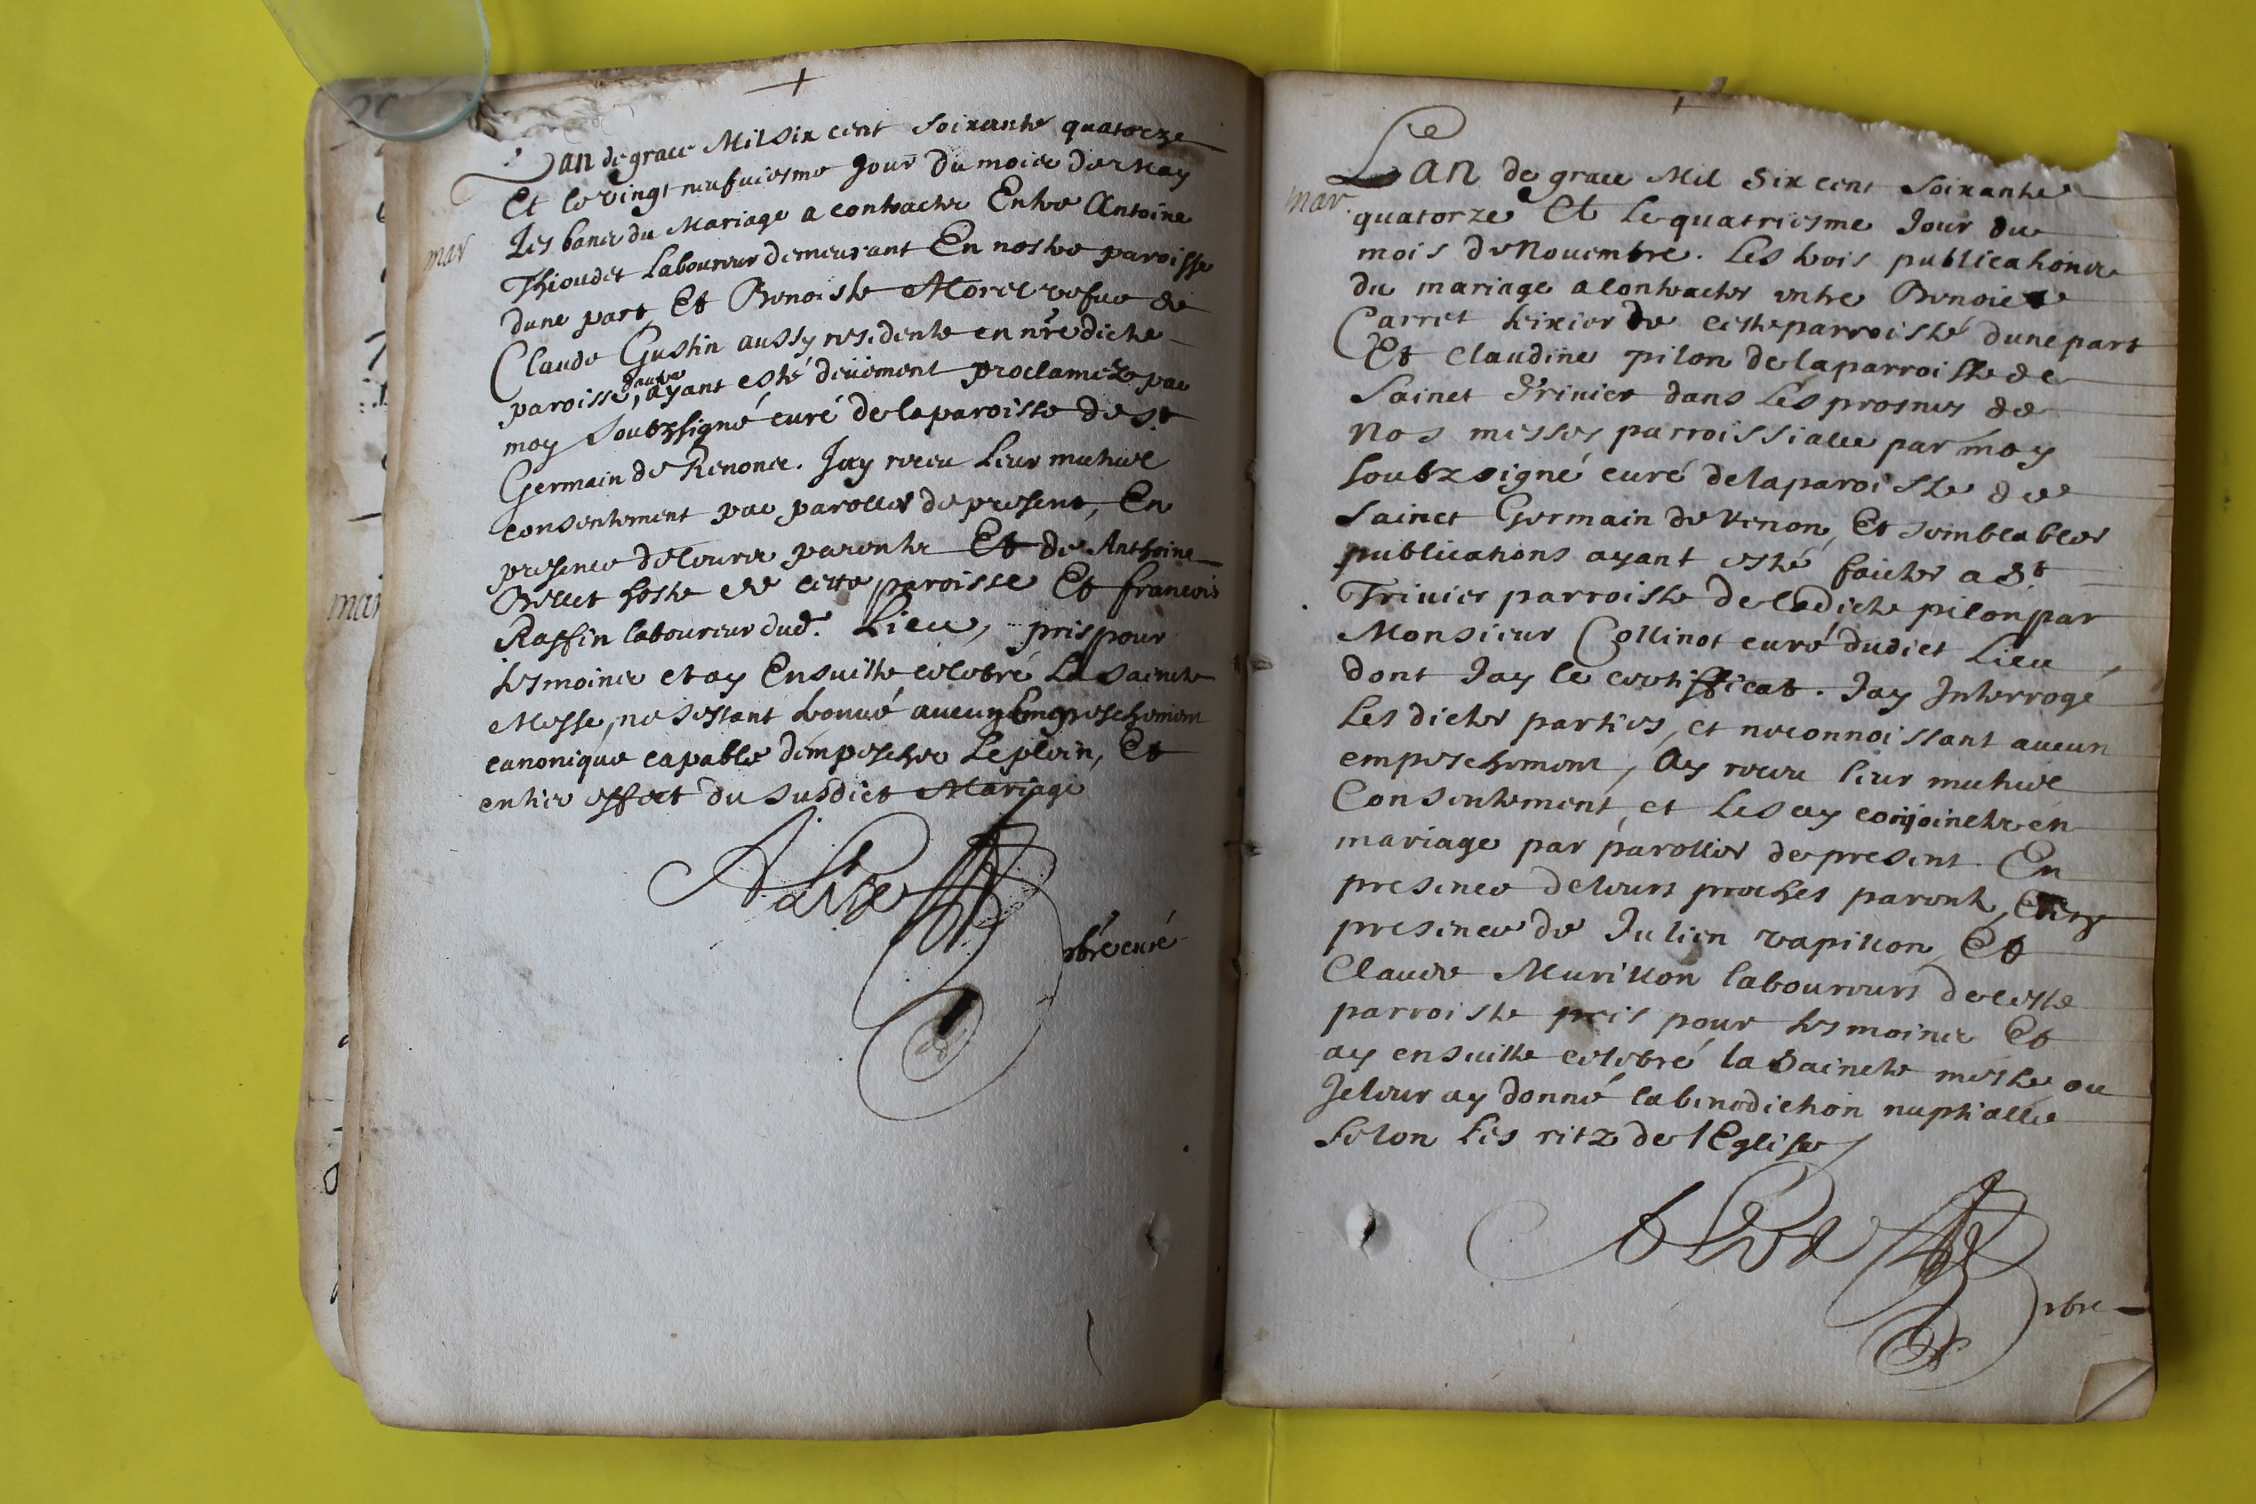 Lan de grace Mil six cent soixante quatorze
Et le vingt neufuiesme Jour du moies de May
mar
Les bans du Mariage a contracter Entre Antoine
Thioudet Laboureur demeurant En nostre paroisse
dune part Et Benoiste Morel vefue de
Claude Gustin aussy residente en nre dicte
paroisse, dautre ayant esté deüement proclamez par
moy soubzsigné curé de la paroisse de St
Germain de Renons. Jay receu leur mutuel
consentement par parolles de present, En
presence de leurs parents Et de Anthoine
Brllet hoste de cette paroisse Et francois
Raffin laboureur dud. Lieu, pris pour
tesmoins et ay Ensuitte celebré La Saincte
Messe, ne sestant trouué aucun Empeschement
canonique capable dempescher Le plein, Et
entier effect du susdict Mariage
pbre curé
mar
mar.
Lan de grace Mil Six cent soixante
quatorze Et le quatriesme Jour du
mois de Nouembre. Les trois publications
du mariage a contracter entre Benoict
Carret tixier de ceste parroisse dune part
Et Claudine pilon de la parroisse de
Sainct Triuier dans Les prosnes de
Nos messes parroissialle par moy
soubzsigné curé de la paroisse de
Sainct Germain de Renon, Et semblables
publications ayant esté faictes a St
Triuier parroisse de ladicte pilon par
Monsieur Collinot curé dudict Lieu
dont Jay le certifficat. Jay Interrogé
Les dictes parties, et ne connoissant aucun
empeschement, Ay receu leur mutuel
Consentement, et Les ay conjoincts en
mariage par parolles de present. En
presence de leurs proches parents, Et
presence de Julien rapillon Et
Claude Murillon laboureurs de ceste
parroisse pris pour tesmoins Et
ay ensuitte celebré la Saincte messe ou
Je leur ay donné la benediction nuptialle
selon Les ritz de l Eglise
pbre